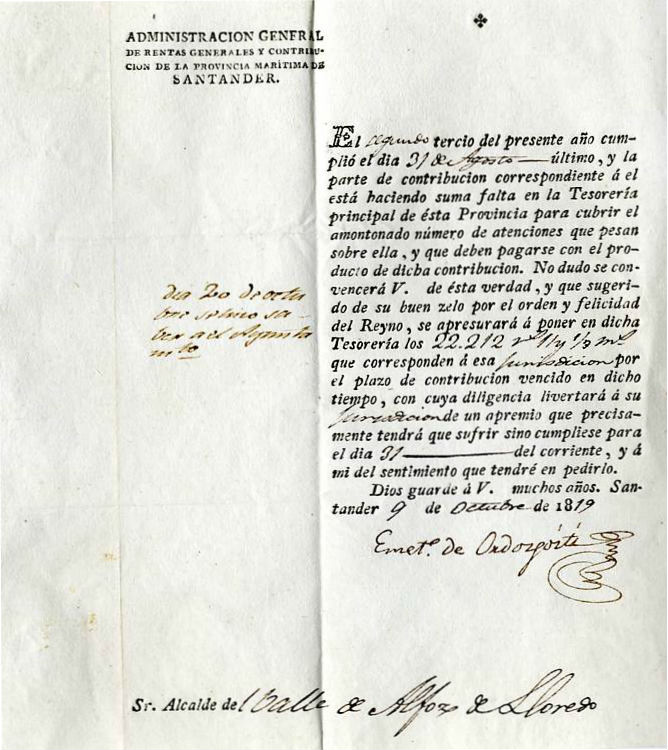 ADMINISTRACION GENERAL
DE RENTAS GENERALES Y CONTRIBU-
CION DE LA PROVINCIA MARÍTIMA DE
SANTANDER.
El segundo tercio del presente año cum-
plió el dia 31 de Agosto último, y la
parte de contribucion correspondiente á el
está haciendo suma falta en la Tesorería
principal de ésta Provincia para cubrir el
amontonado número de atenciones que pesan
sobre ella, y que deben pagarse con el pro-
ducto de dicha contribucion. No dudo se con-
vencerá V. de ésta verdad, y que sugeri-
do de su buen zelo por el orden y felicidad
del Reyno, se apresurará á poner en dicha
Tesorería los 22.212 rs. 11 y 1/2 ms.
que corresponden á esa Jurisdicion por
el plazo de contribucion vencido en dicho
tiempo, con cuya diligencia livertará á su
Jurisdicion de un apremio que precisa-
mente tendrá que sufrir sino cumpliese para
el dia 31 del corriente, y á
mi del sentimiento que tendré en pedirlo.
Dios guarde á V. muchos años. San-
tander 9 de Octubre de 1819
Emet.º de
dia 20 de octu
bre se hizo sa-
ver a el Ayunta
mto
Sr. Alcalde del Valle de Alfoz de Lloredo